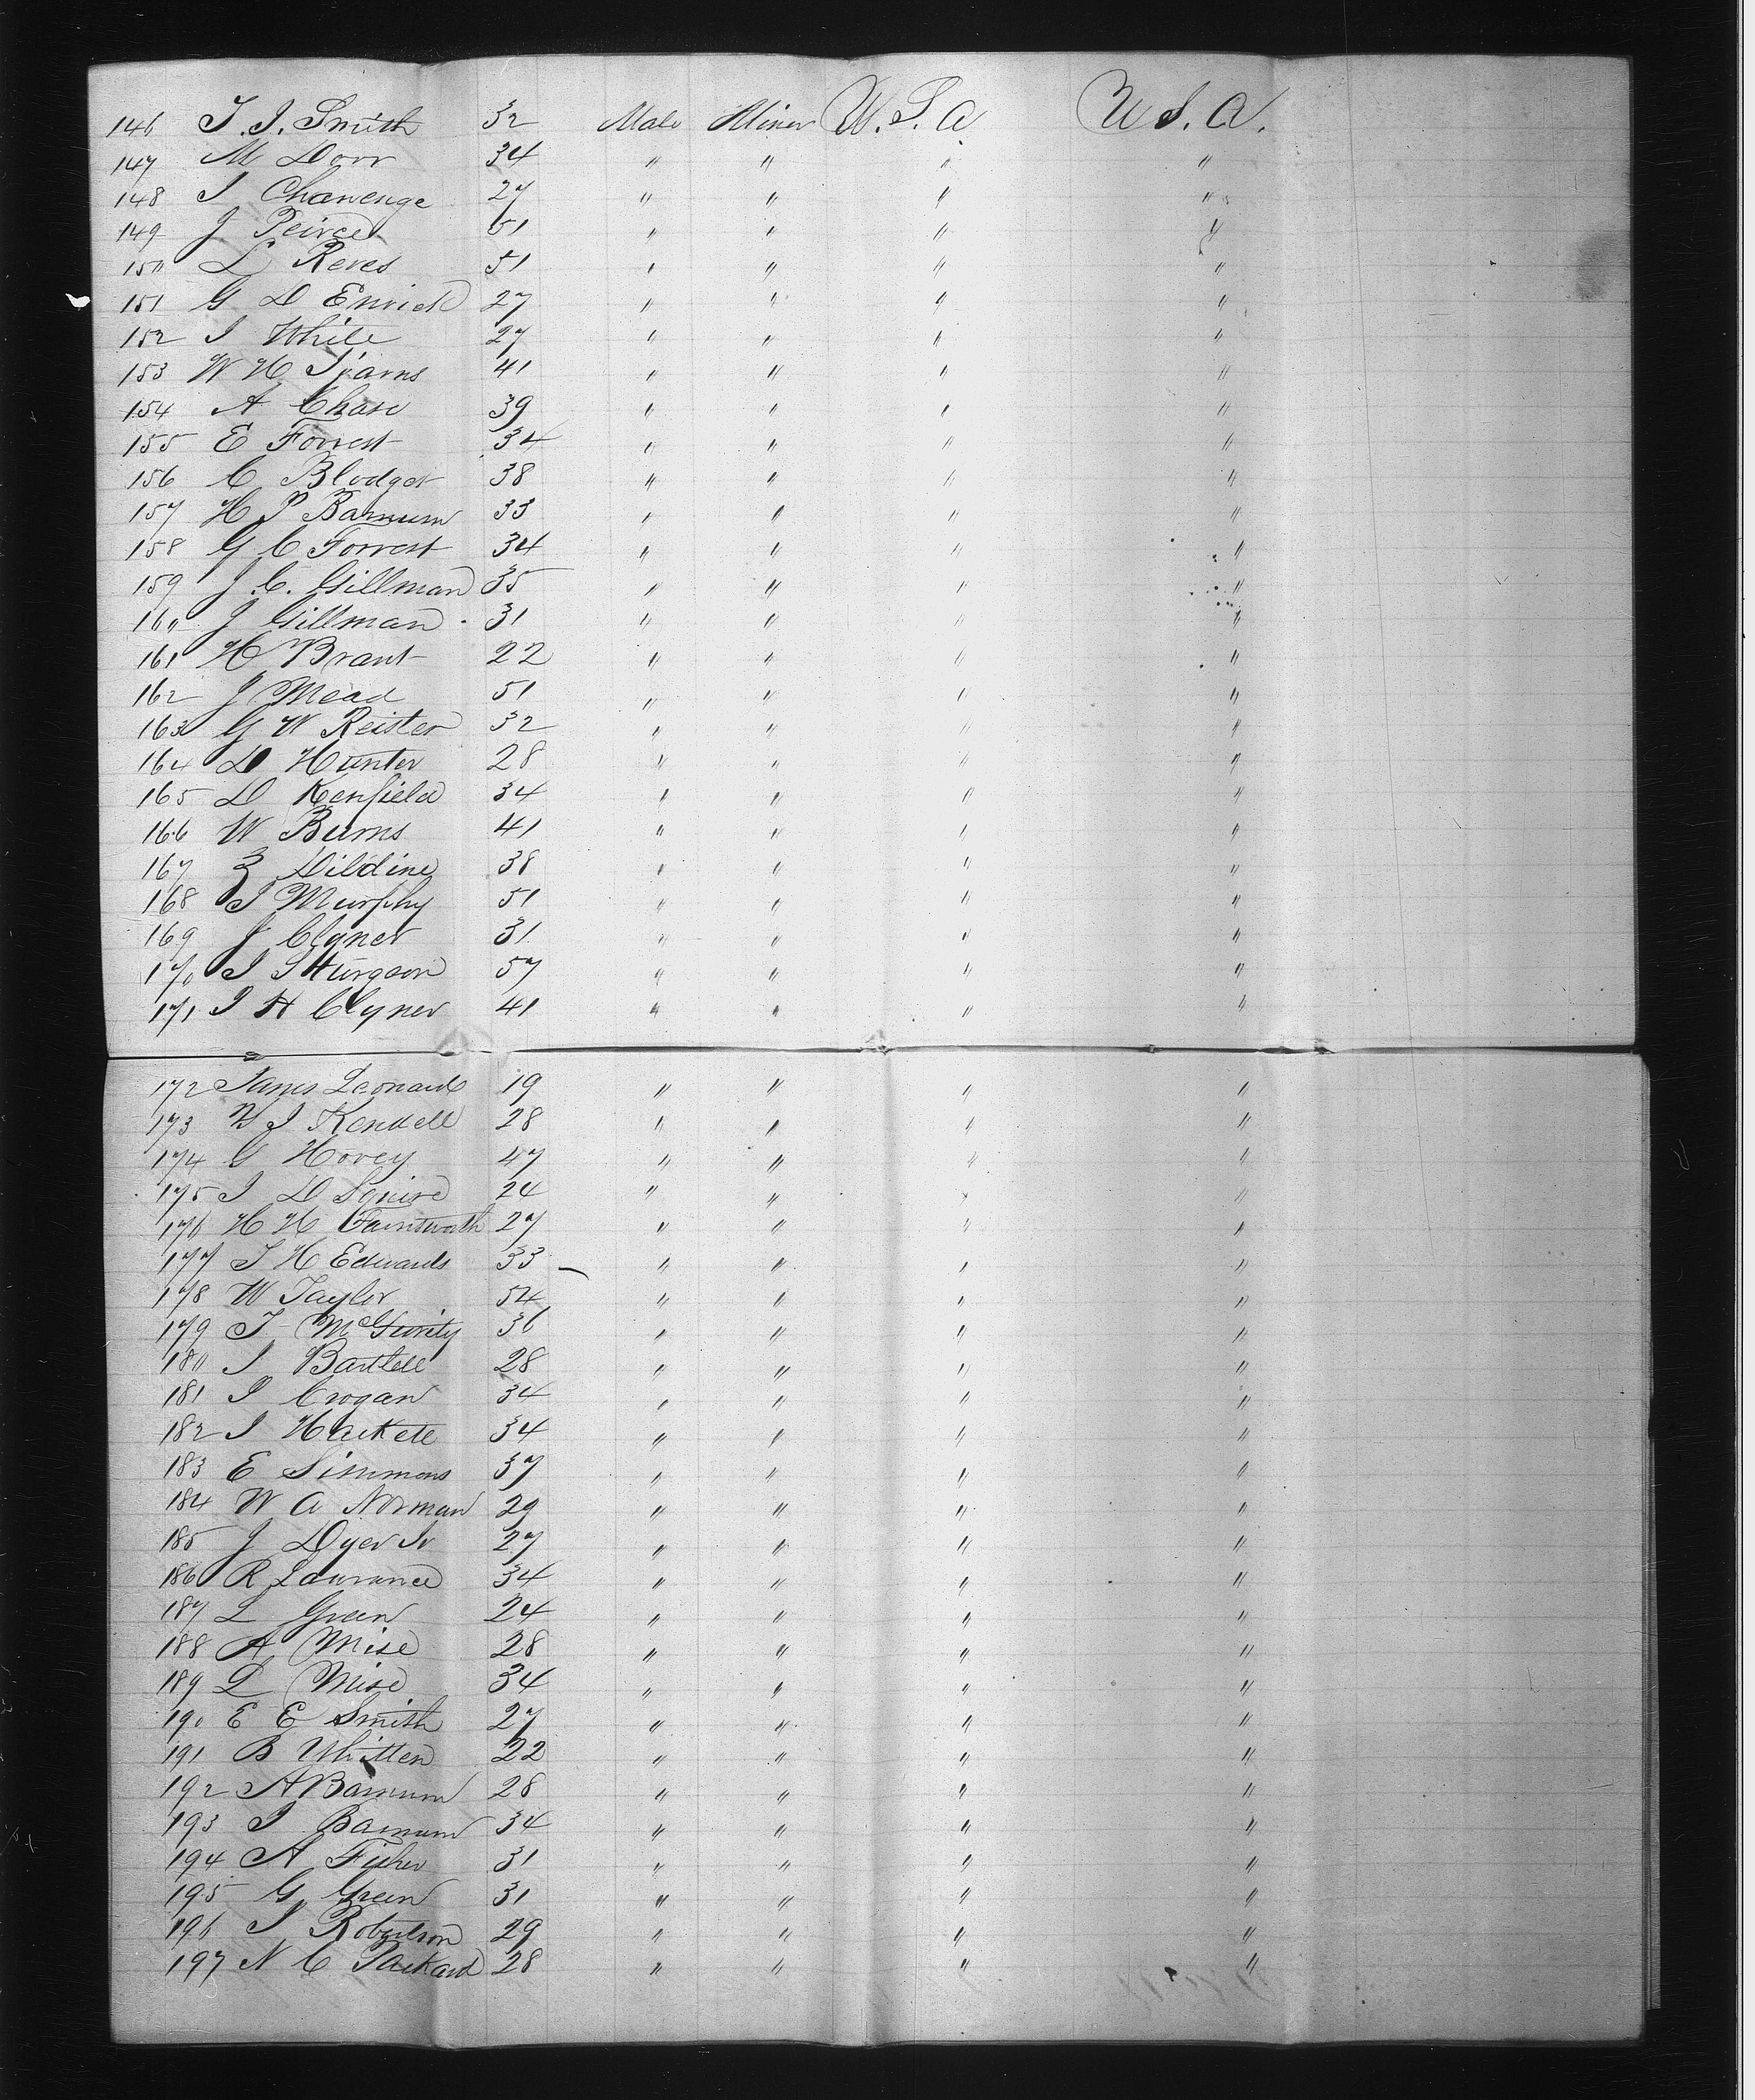 146 T. J. Smith 32 Male Miner U. S. A U. S. A.
147 M Dorr 34 " " " "
148 J 27 " " " "
149 J Peirce 51 " " " "
150 L Reves 51 " " " "
151 G D 27 " " " "
152 J White 27 " " " "
153 W H 41 " " " "
154 A Chase 39 " " " "
155 E Forrest 34 " " " "
156 C Blodget 38 " " " "
157 H P Barnum 33 " " " "
158 G C Forrest 34 " " " "
159 J. C. Gillman 35 " " " "
160 J Gillman 31 " " " "
161 H Brant 22 " " " "
162 J Mead 51 " " " "
163 G W Reister 32 " " " "
164 D Hunter 28 " " " "
165 D Kenfield 34 " " " "
166 W Burns 41 " " " "
167 Z Dildine 38 " " " "
168 J Murphy 51 " " " "
169 J Clyner 31 " " " "
170 J Sturgeon 57 " " " "
171 J H Clyner 41 " " " "
172 James Leonard 19 " " " "
173 J Kendell 28 " " " "
174 G Hovey 47 " " " "
175 J D Squire 24 " " " "
176 H H Farnsworth 27 " " " "
177 T H Edwards 33 " " " "
178 W Taylor 54 " " " "
179 T 36 " " " "
180 J Bartlett 28 " " " "
181 J Crogan 34 " " " "
182 J Hackett 34 " " " "
183 E Simmons 37 " " " "
184 W A Norman 29 " " " "
185 J Dyer Jr 27 " " " "
186 R Lawrance 34 " " " "
187 L Green 24 " " " "
188 A Mise 28 " " " "
189 L Mise 34 " " " "
190 E E Smith 27 " " " "
191 B Whitten 22 " " " "
192 A Barnum 28 " " " "
193 J Barnum 34 " " " "
194 A Fisher 31 " " " "
195 G Green 31 " " " "
196 J Robertson 29 " " " "
197 N C Packard 28 " " " "